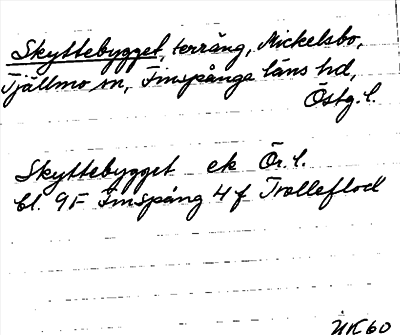 Skyttebygget, terräng, Mickelsbo,
Tjällmo sn, Finspånga läns hd,
Östg. l.
Skyttebygget ek Ö. l.
bl. 9F Finspång 4 f Trolleflod
UK60